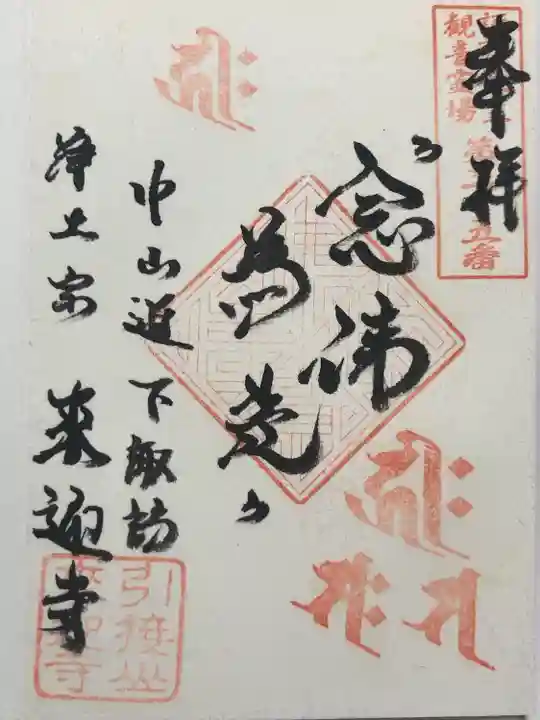 奉拝
念佛
為先
中山道 下諏訪
浄土宗 来迎寺
観音霊場
引接山
来迎寺